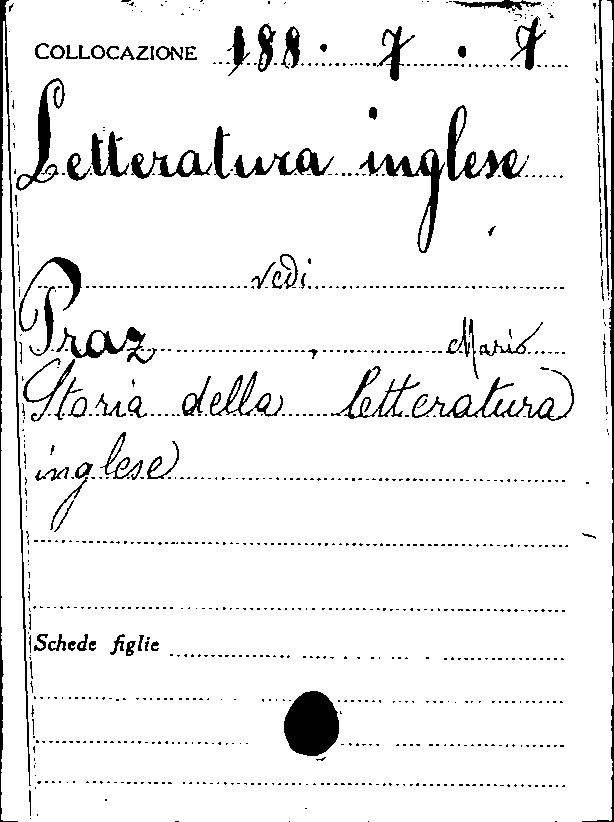 COLLOCAZIONE 188 . 7 . 7
Letteratura inglese
vedi
Praz , Mario
Storia della letteratura
inglese
Schede figlie